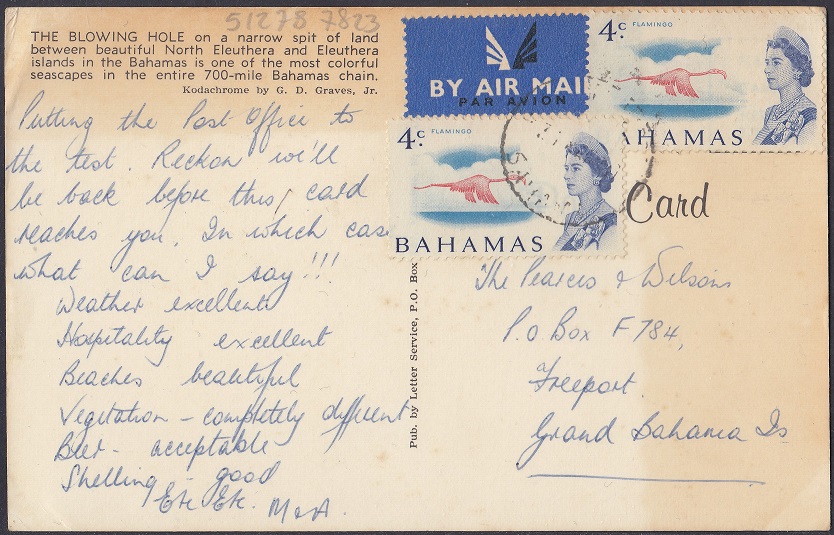 51278 7823
THE BLOWING HOLE on a narrow spit of land
between beautiful North Eleuthera and Eleuthera
islands in the Bahamas is one of the most colorful
seascapes in the entire 700-mile Bahamas chain.
Kodachrome by G. D. Graves, Jr.
Putting the Post Office to
the test. Reckon we'll
be back before this card
reaches you. In which cas
what can I say!!!
Weather excellent
Hospitality excellent
Beaches beautiful
Vegetation - completely different
Beer - acceptable
Shelling - good
Etc Etc. M & A.
Pub. by Letter Service, P.O. Box
BY AIR MAIL
PAR AVION
4c. FLAMINGO
BAHAMAS
4c. FLAMINGO
AHAMAS
Card
The Pearces & Wilsons
P.O Box F784,
Freeport.
Grand Bahama Is